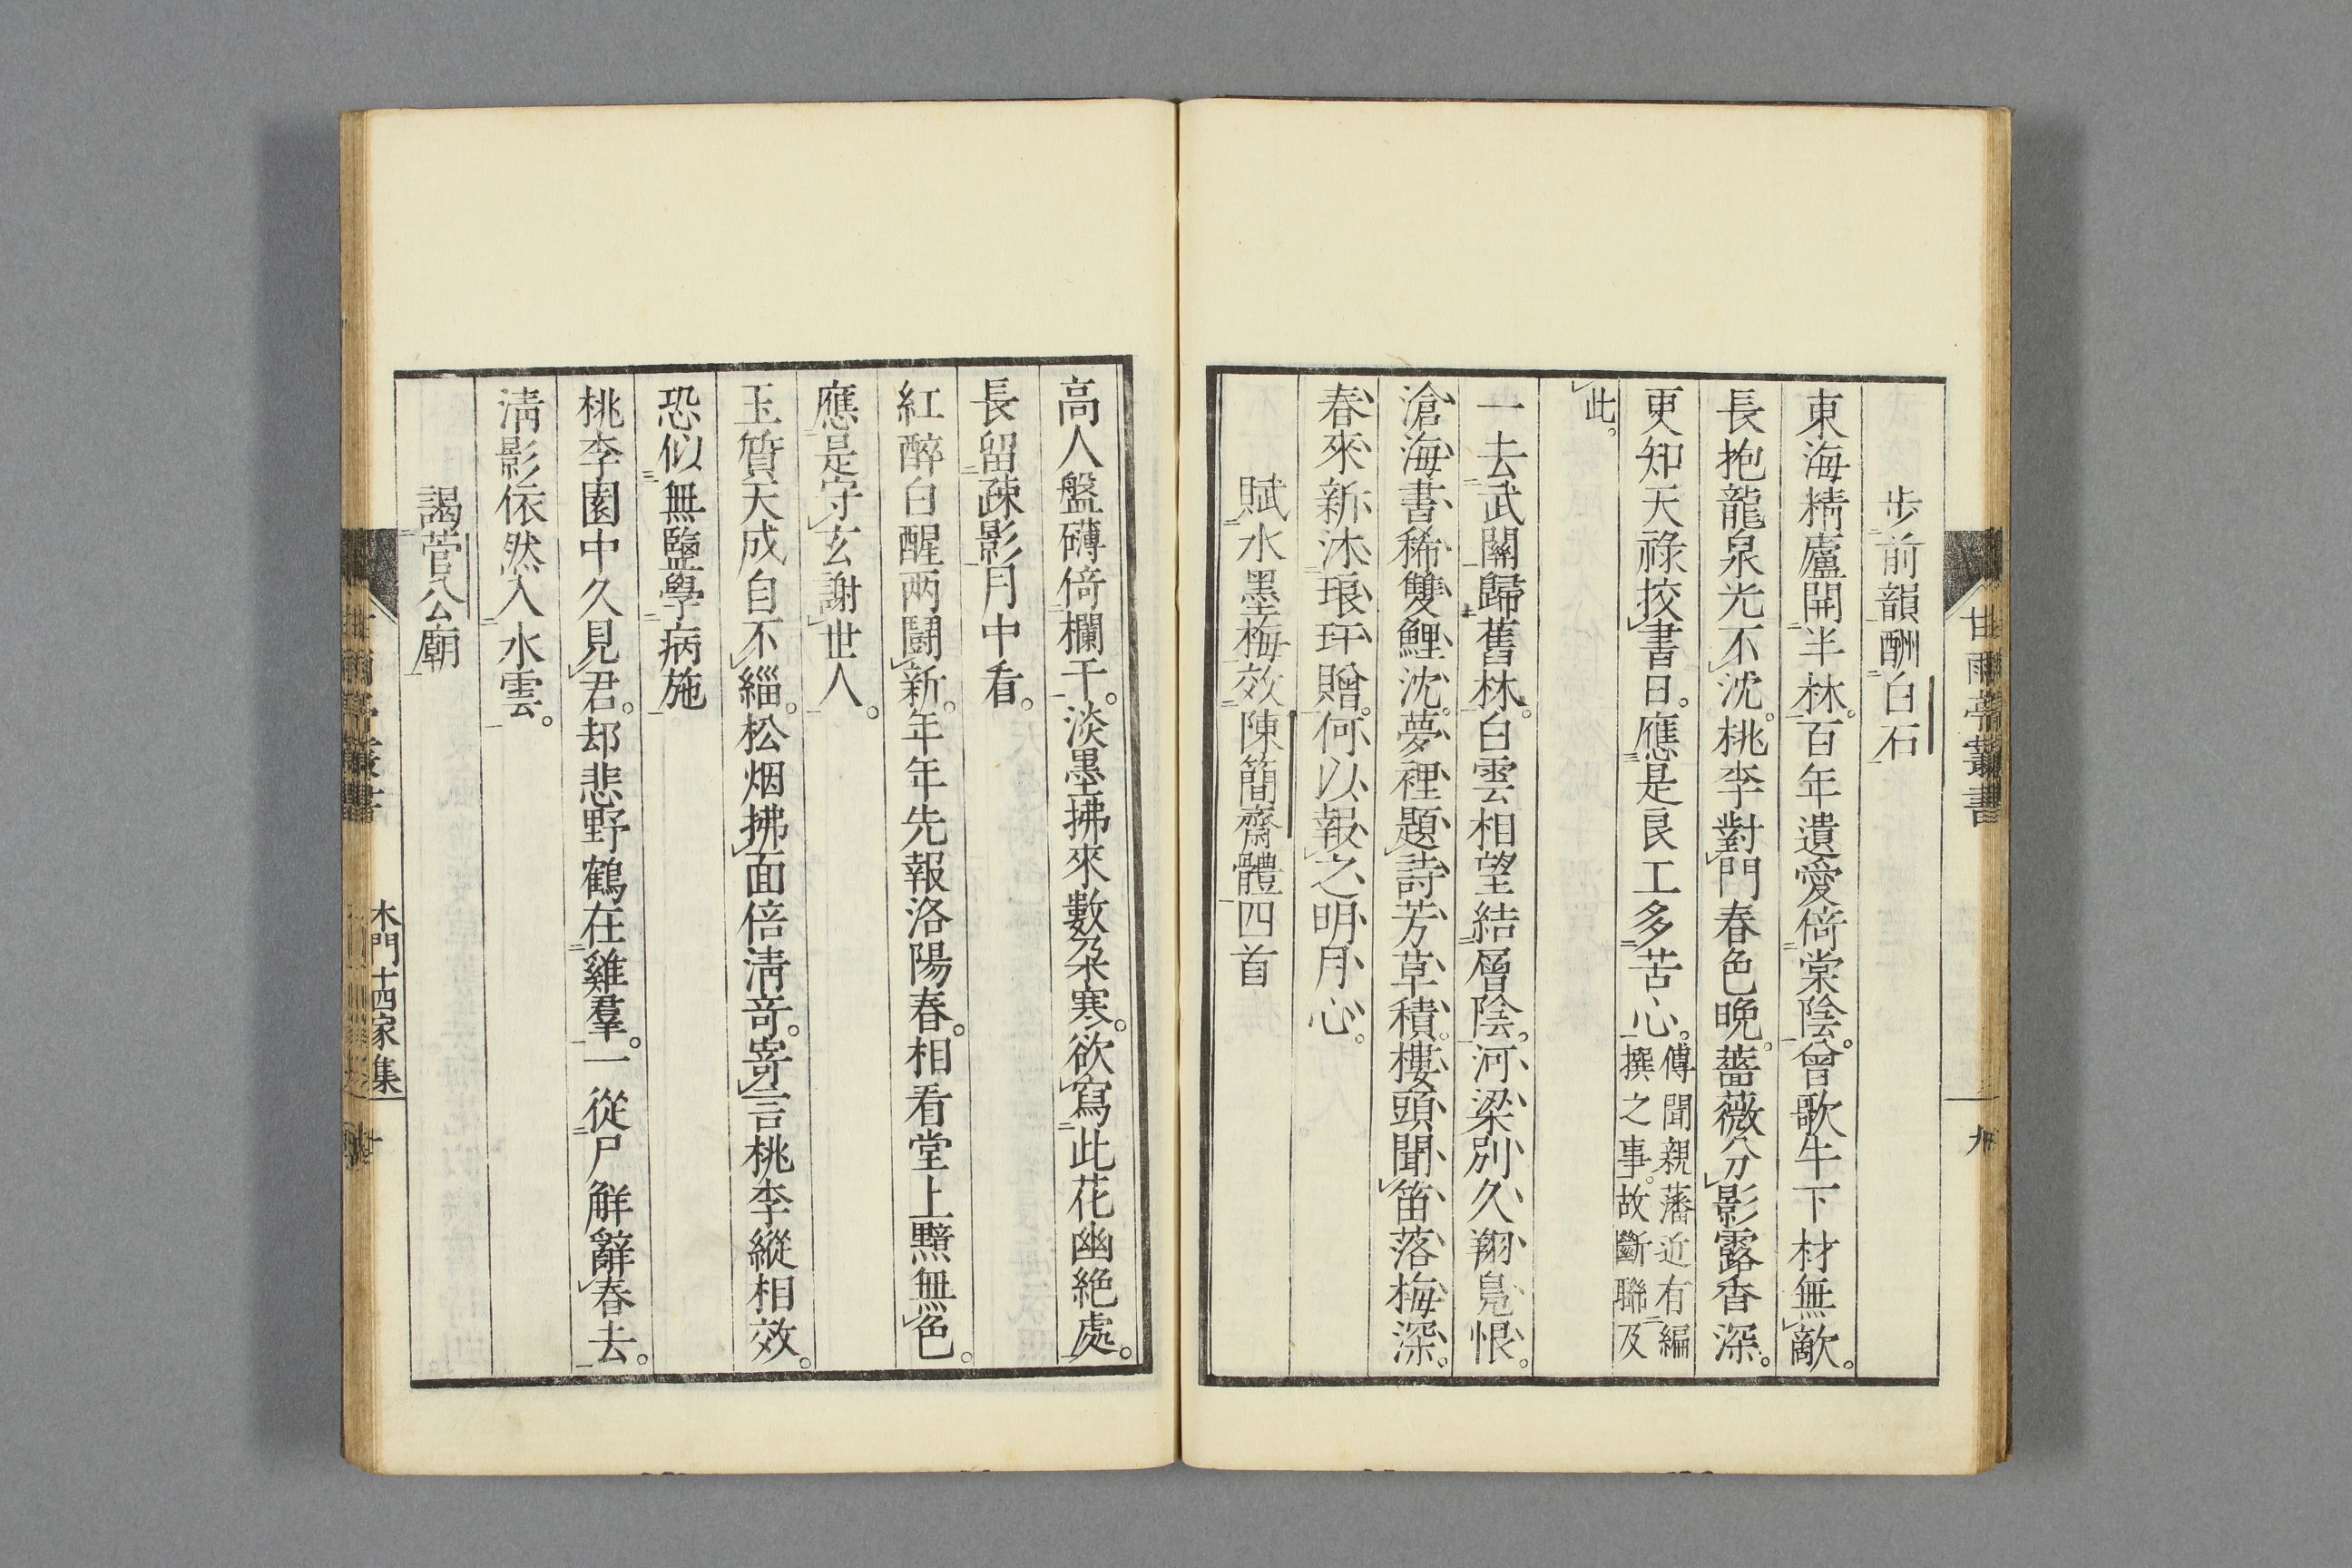 甘雨亭叢書
九
步前韻酬白石
東海精廬開半林。百年遺愛倚棠陰。曾歌牛下材無敵。
長抱龍泉光不沈。桃李對門春色晚。薔薇分影露香深。
更知天祿挍書日。應是良工多苦心。傳聞親藩近有編
撰之事。故斷聯及
此。
一去武關歸舊林。白雲相望結層陰。河梁別久翔鳧恨。
滄海書稀雙鯉沈。夢裡題詩芳草積。樓頭聞笛落梅深。
春來新沐琅玕贈。何以報之明月心。
賦水墨梅效陳簡齋體四首
高人盤礴倚欄干。淡墨拂來數朶寒。欲寫此花幽絕處。
長留疎影月中看。
紅醉白醒两鬪新。年年先報洛陽春。相看堂上黯無色。
應是守玄謝世人。
玉質天成自不緇。松烟拂面倍淸竒。寄言桃李縱相效。
恐似無鹽學病施
桃李園中久見君。却悲野鶴在雞羣。一從尸解辭春去。
淸影依然入水雲。
謁菅公廟
木門十四家集